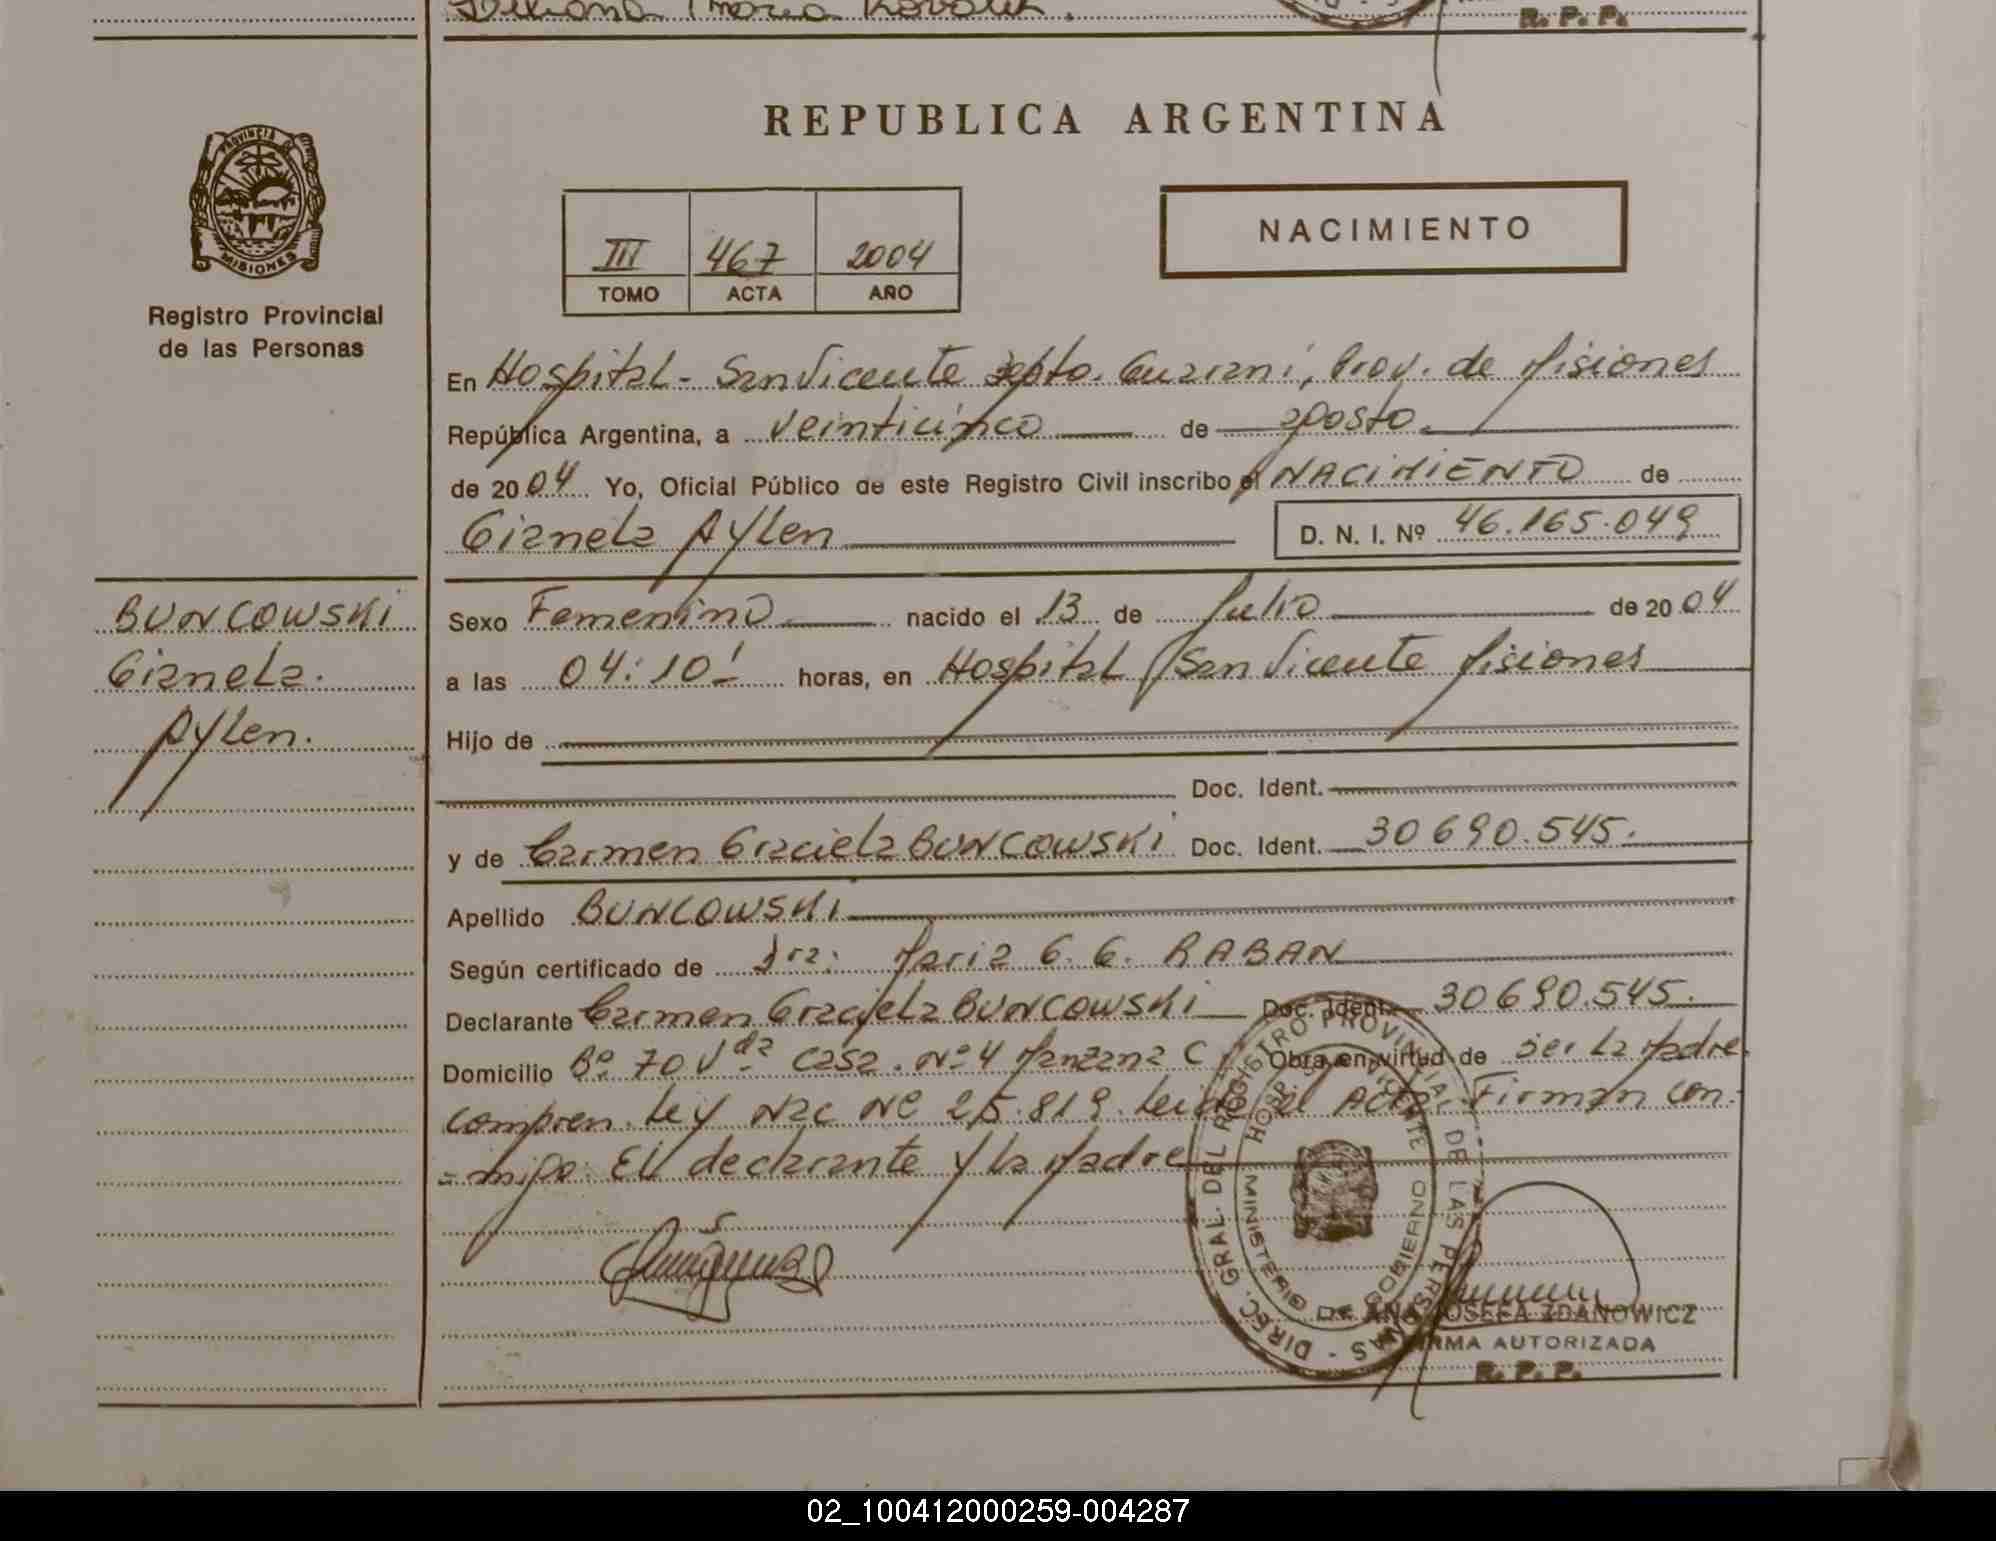 Liliana Maria
R. P. P.
REPUBLICA ARGENTINA
PROVINCIA DE
MISIONES
Registro Provincial
de las Personas
III 467 2004
TOMO ACTA AÑO
NACIMIENTO
En Hospital - San Vicente Depto. Guarani, Prov. de Misiones
República Argentina, a veinticinco de agosto.
de 2004 Yo, Oficial Público de este Registro Civil inscribo el NACIMIENTO de
Gianela Aylen
D. N. I. Nº 46.165.049
BUNCOWSKI
Gianela.
Aylen.
Sexo Femenino nacido el 13 de Julio de 2004
a las 04:10' horas, en Hospital San Vicente Misiones
Hijo de
Doc. Ident.
y de Carmen Graciela BUNCOWSKI Doc. Ident. 30690.545.
Apellido BUNCOWSKI
Según certificado de Dra: Maria G. G. RABAN
Declarante Carmen Graciela BUNCOWSKI Doc. Ident. 30690.545.
Domicilio Bº 70 Vdª Casa. Nº 4 Manzana C Obra en virtud de ser La Madre.
compren. Ley Nac Nº 25.819. Leida el Acta. Firman con-
=migo: El declarante y la Madre
DIREC. GRAL. DEL REGISTRO PROVINCIAL DE LAS PERSONAS -
HOSP. SAN VICENTE
MINISTERIO DE GOBIERNO
ANA JOSEFA ZDANOWICZ
FIRMA AUTORIZADA
R. P. P.
02_100412000259-004287